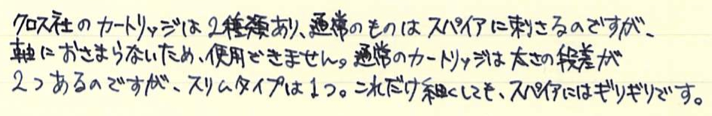 クロス社のカートリッジは2種類あり、通常のものはスパイアに刺さるのですが、
軸におさまらないため、使用できません。通常のカートリッジは太さの段差が
2つあるのですが、スリムタイプは1つ。これだけ細くしても、スパイアにはギリギリです。